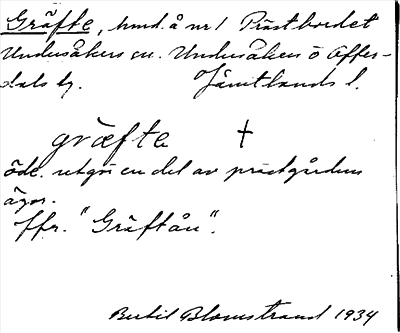 Gräfte, hmd. å nr 1 Prästbordet
Undersåkers sn. Undersåkers o Offer-
dals tg. Jämtlands l.
græfte †
öde. utgör en del av prästgårdens
ägor.
Jfr. "Gräftån".
Bertil Blomstrand 1934